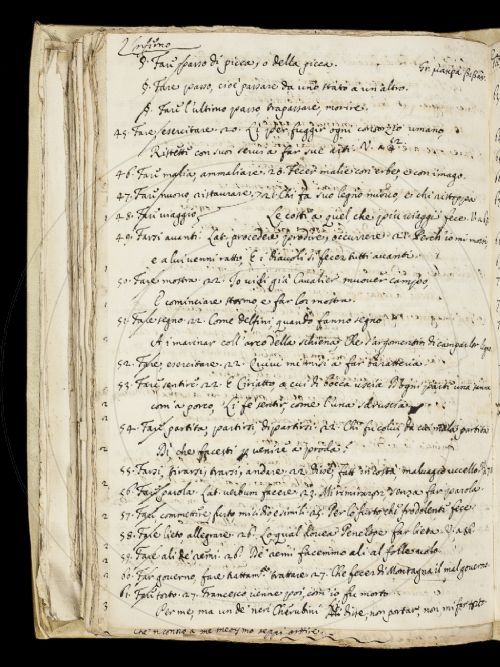 Inferno
§. Fare sparso di picca, o della picca.
§. Fare passo, cioè passare da uno stato a un altro.
§. Fare l'ultimo passo trapassare, morire.
45. Fare, esercitare. 20. Lì per fuggir ogni consorzio umano
Ristette con suoi servi a far sue arti. V. a 12.
46. Far malìa, ammaliare. 20. Fecer malie con erbe, e con imago.
47. Far nuovo, ristaurare. 21. Chi fa suo legno nuovo, e chi ristoppa
48. Far viaggio. Le coste a quel che più viaggi fece. V. a
49. Farsi avanti. Lat. procedere prodire, occurrere. 21. Perch' io mi mossi
e a lui venni ratto, E i Diavoli si fecer tutti avanti.
50. Fare mostra. 22. Io vidi già Cavalier muover campo,
E cominciare stormo e far lor mostra.
51. Fare segno. 22. Come delfini quando fanno segno
A i marinar coll' arco della schiena, Che s'argomentin di campar lor legno
52. Fare, esercitare. 22. Quivi mi misi a far baratteria
53. Fare sentire. 22. E Ciriatto, a cui di bocca uscia D'ogni parte una sanna
com' a porco, Li fe sentir, come l'una sdruscia.
54. Fare partita, partirsi, dipartirsi. 22. Chi fu colui, da cui mala partita
Di, che facesti per venire a proda?
55. Farsi, tirarsi, trarsi, andare. 22. Disse, fatti 'n costà malvagio uccello.
56. Far parola. Lat. verbum facere. 23. Mi rimiraron senza far parola.
57. Fare, commettere furto micidio e simili. 25. Per lo furto che frodolente fece
58. Fare lieto, allegrare. 26. Lo qual dovea Penelope far lieta. V. a 56.
59. Fare ali de' remi. 26. De' remi facemmo ali al folle volo
60. Far governo, fare trattamto trattare. 27. Che fecer di Montagna il mal governo
61. Far torto. 27. Francesco venne poi, com' io fu' morto
Per me, ma un de' neri Cherubini Gli disse, non portar, non mi far torto